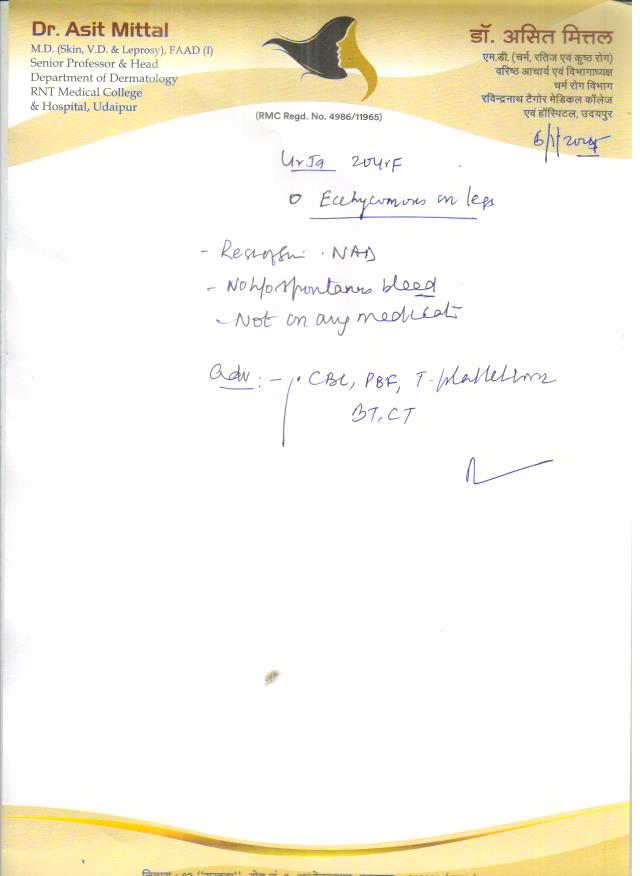 Dr. Asit Mittal
M.D. (Skin, V.D. & Leprosy), FAAD (I)
Senior Professor & Head
Department of Dermatology
RNT Medical College
& Hospital, Udaipur
(RMC Regd. No. 4986/11965)
डॉ. असित मित्तल
एम.डी. (चर्म, रतिज एवं कुष्ठ रोग)
वरिष्ठ आचार्य एवं विभागाध्यक्ष
चर्म रोग विभाग
रविन्द्रनाथ टैगोर मेडिकल कॉलेज
एवं हॉस्पिटल, उदयपुर
Urja 20yrF
on legs
- NAD
- No h/o spontaneous bleed
- Not on any
Adv: - CBC, PBF, T.
BT, CT